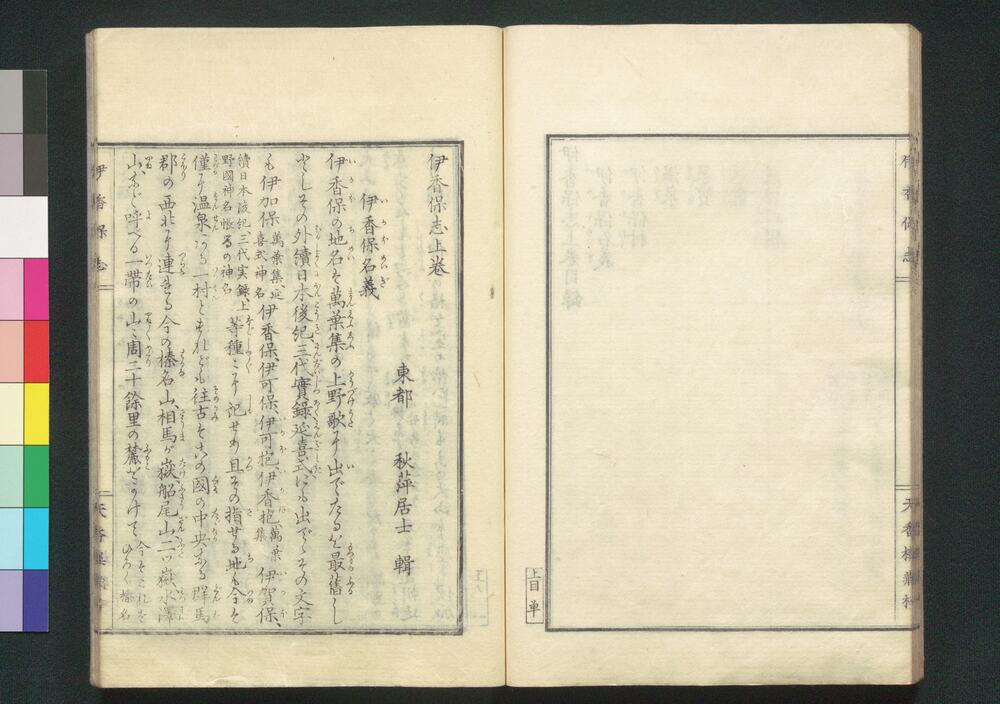 伊香保志
上目 単
伊香保志上巻
東都 秋萍居士 輯
伊香保名義
伊香保の地名ハ萬葉集の上野歌に出でたるを最舊しと
しその外續日本後紀、三代實録延喜式にも出でゝその文字
も伊加保萬葉集、延喜式、神名伊香保、伊可保、伊可抱、伊香抱、萬葉集伊賀保、
續日本後紀、三代実録上野國神名帳等の神名等種々に記せり且その指せる地も今ハ
僅に温泉ある一村とすれども往古ハこの國の中央なる群馬
郡の西北に連れる今の榛名山、相馬ガ嶽、船尾山二ツ嶽、水澤
山、など呼べる一帶の山々周二十餘里の麓をかけて今そこれをひろく榛名
伊香保志